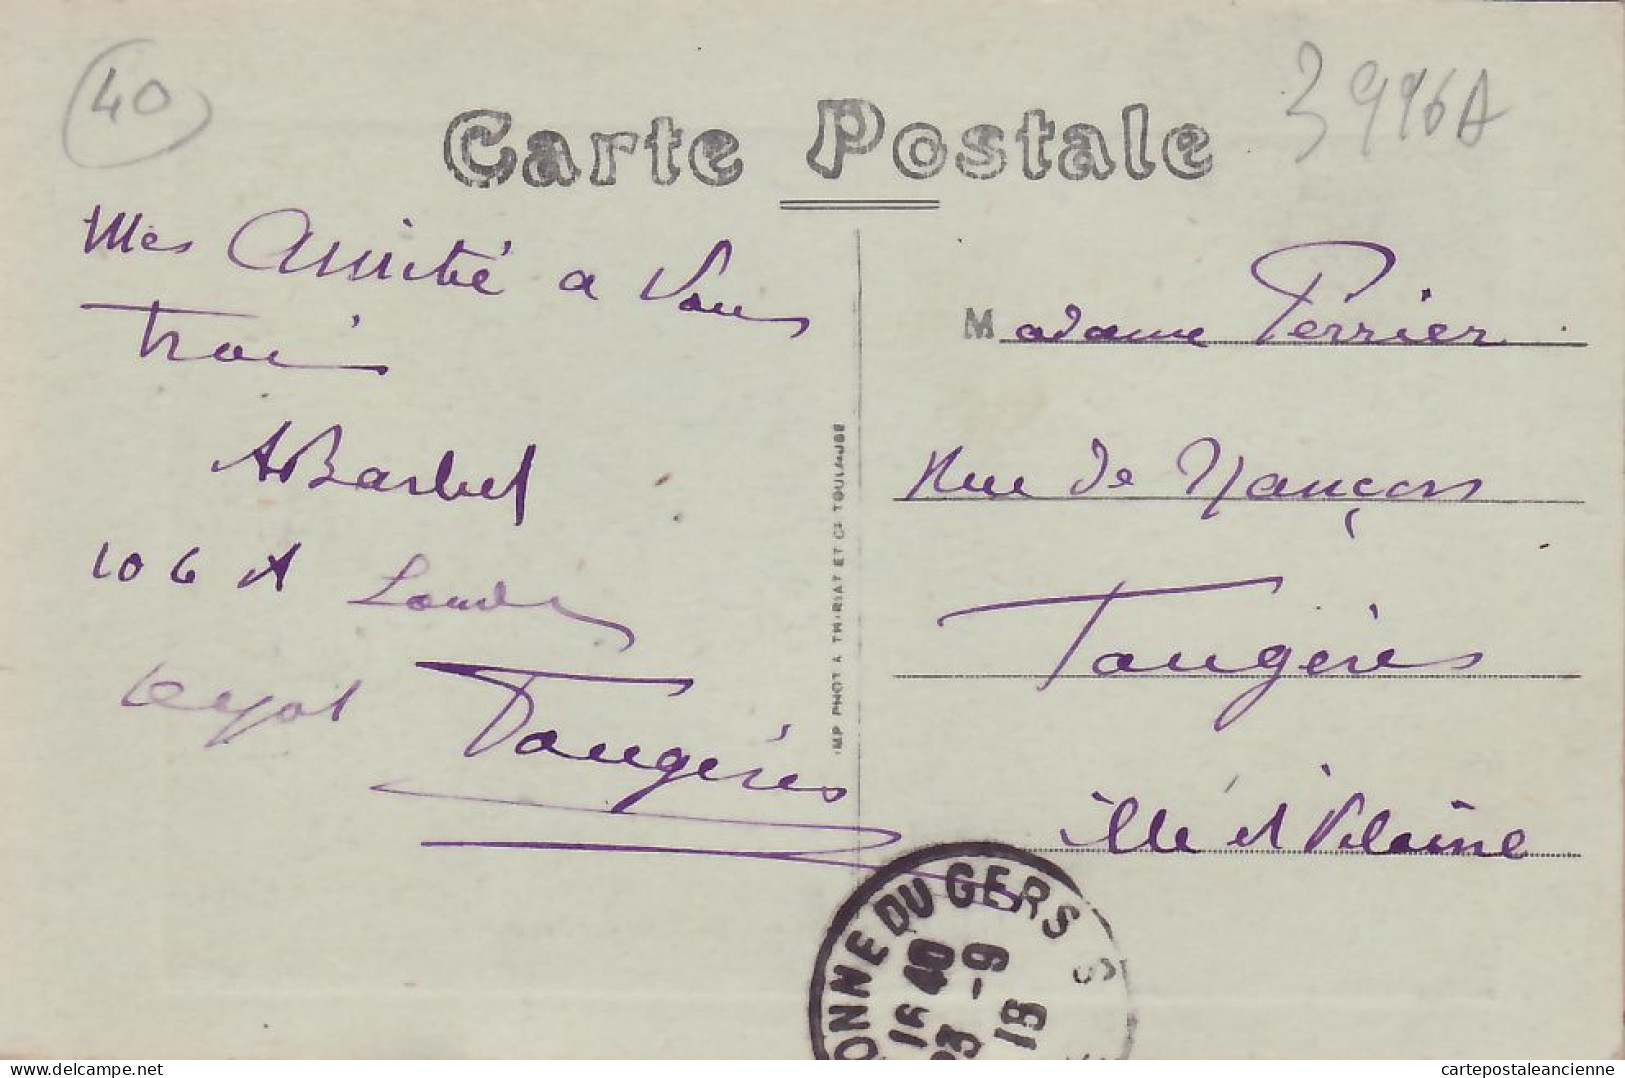 40
3996A
Carte Postale
Mes Amitié a Vous
trois
ABarbel
106 A
Fougères
IMP PHOT A THIRIAT ET Cie TOULOUSE
Madame Perrier
Rue de Nançon
Fougères
ille et Vilaine
ONNE DU GERS
16 40
23 -9
18
delcampe.net
cartepostaleancienne